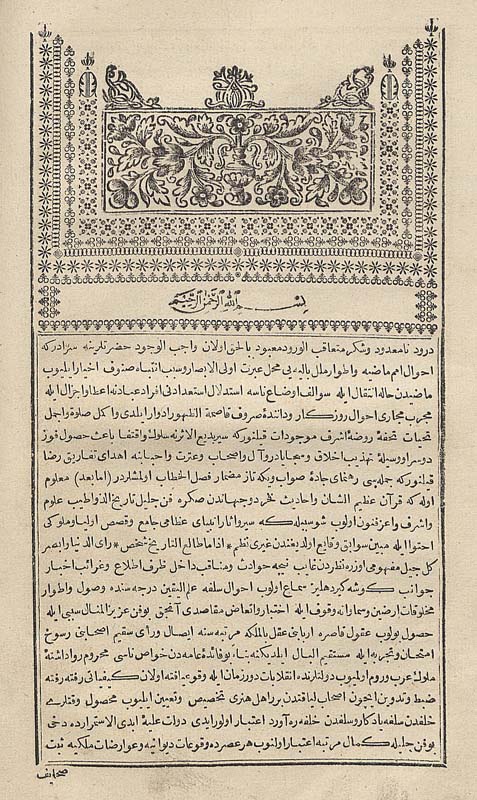 بسم الله الرحمن الرحيم
درود نامعدود وشكر متعاقب الورود معبود بالحق اولان واجب الوجود حضرتلرينه سزادركه
احوال امم ماضيه واطوار ملل باليه يى محل عبرت اولى الابصار وسبب انتباه صنوف اخيار ايليوب
ماضيدن حاله انتقال ايله سوالف اوضاع ناسه استدلال استعدادنى افراد عبادنه اعطا واجزال ايله
مجرب مجارى احوال روزكار ودانندهٔ صروف قاصمة الظهور ادوار ايلدى واكل صلوة واجمل
تحيات تحفهٔ روضهٔ اشرف موجودات قيلنوركه سير بديع الاثرنه سلوك واقتفا باعث حصول فوز
دوسرا ووسيلهٔ تهذيب اخلاق وسجايادر وآل واصحاب وعترت واحبابنه اهداى تفاريق رضا
قيلنوركه جمله سى رهنماى جادهٔ صواب وبكه تاز مضمار فصل الخطاب اولمشلردر (اما بعد) معلوم
اوله كه قرآن عظيم الشان واحاديث فخر دوجهاندن صكره فن جليل تاريخ الذ واطيب علوم
واشرف واعز فنون اولوب شو سببيله كه سير وآثار انبياى عظامى جامع وقصص اوليا وملوكى
احتوا ايله مبين سوابق وقايع اولديغندن غيرى نظم * اذا ما طالع التاريخ شخص * راى الدنيا وابصر
كل جيل مفهومى اوزره نظردن غايب نيجه حوادث ومناقب داخل ظرف اطلاع وغرائب اخبار
جوانب كوشه كير دهليز سماع اولوب احوال سلفه علم اليقين درجه سنده وصول واطوار
مخلوقات ارضين وسماوانه وقوف ايله اختبار واتعاض مقاصدى آنجق بو فن عزيز المنال سببى ايله
حصول بولوب عقول قاصره اربابنى عقل بالملكه مرتبه سنه ايصال وراى سقيم اصحابنى رسوخ
امتحان وتجربه ايله مستقيم البال ايلديكنه بناء بو فائدهٔ عامه دن خواص ناسى محروم روا داشتهٔ
ملوك عرب وروم اولميوب دولتلرنده انقلابات دور زمان ايله وقوعيافته اولان كيفياتى رفته رفته
ضبط وتدوين ايچون اصحاب لياقتدن بر راهل هنرى تخصيص وتعيين ايليوب محصول وقتلرى
خلفدن سلفه يادكار وسلفدن خلفه ره آورد اعتبار اولورايدى دولت عليهٔ ابدى الاستمرارده دخى
بو فن جليله كمال مرتبه اعتبار اولنوب هر عصرده وقوعات ديوانيه وعوارضات ملكيه ثبت
صحايف